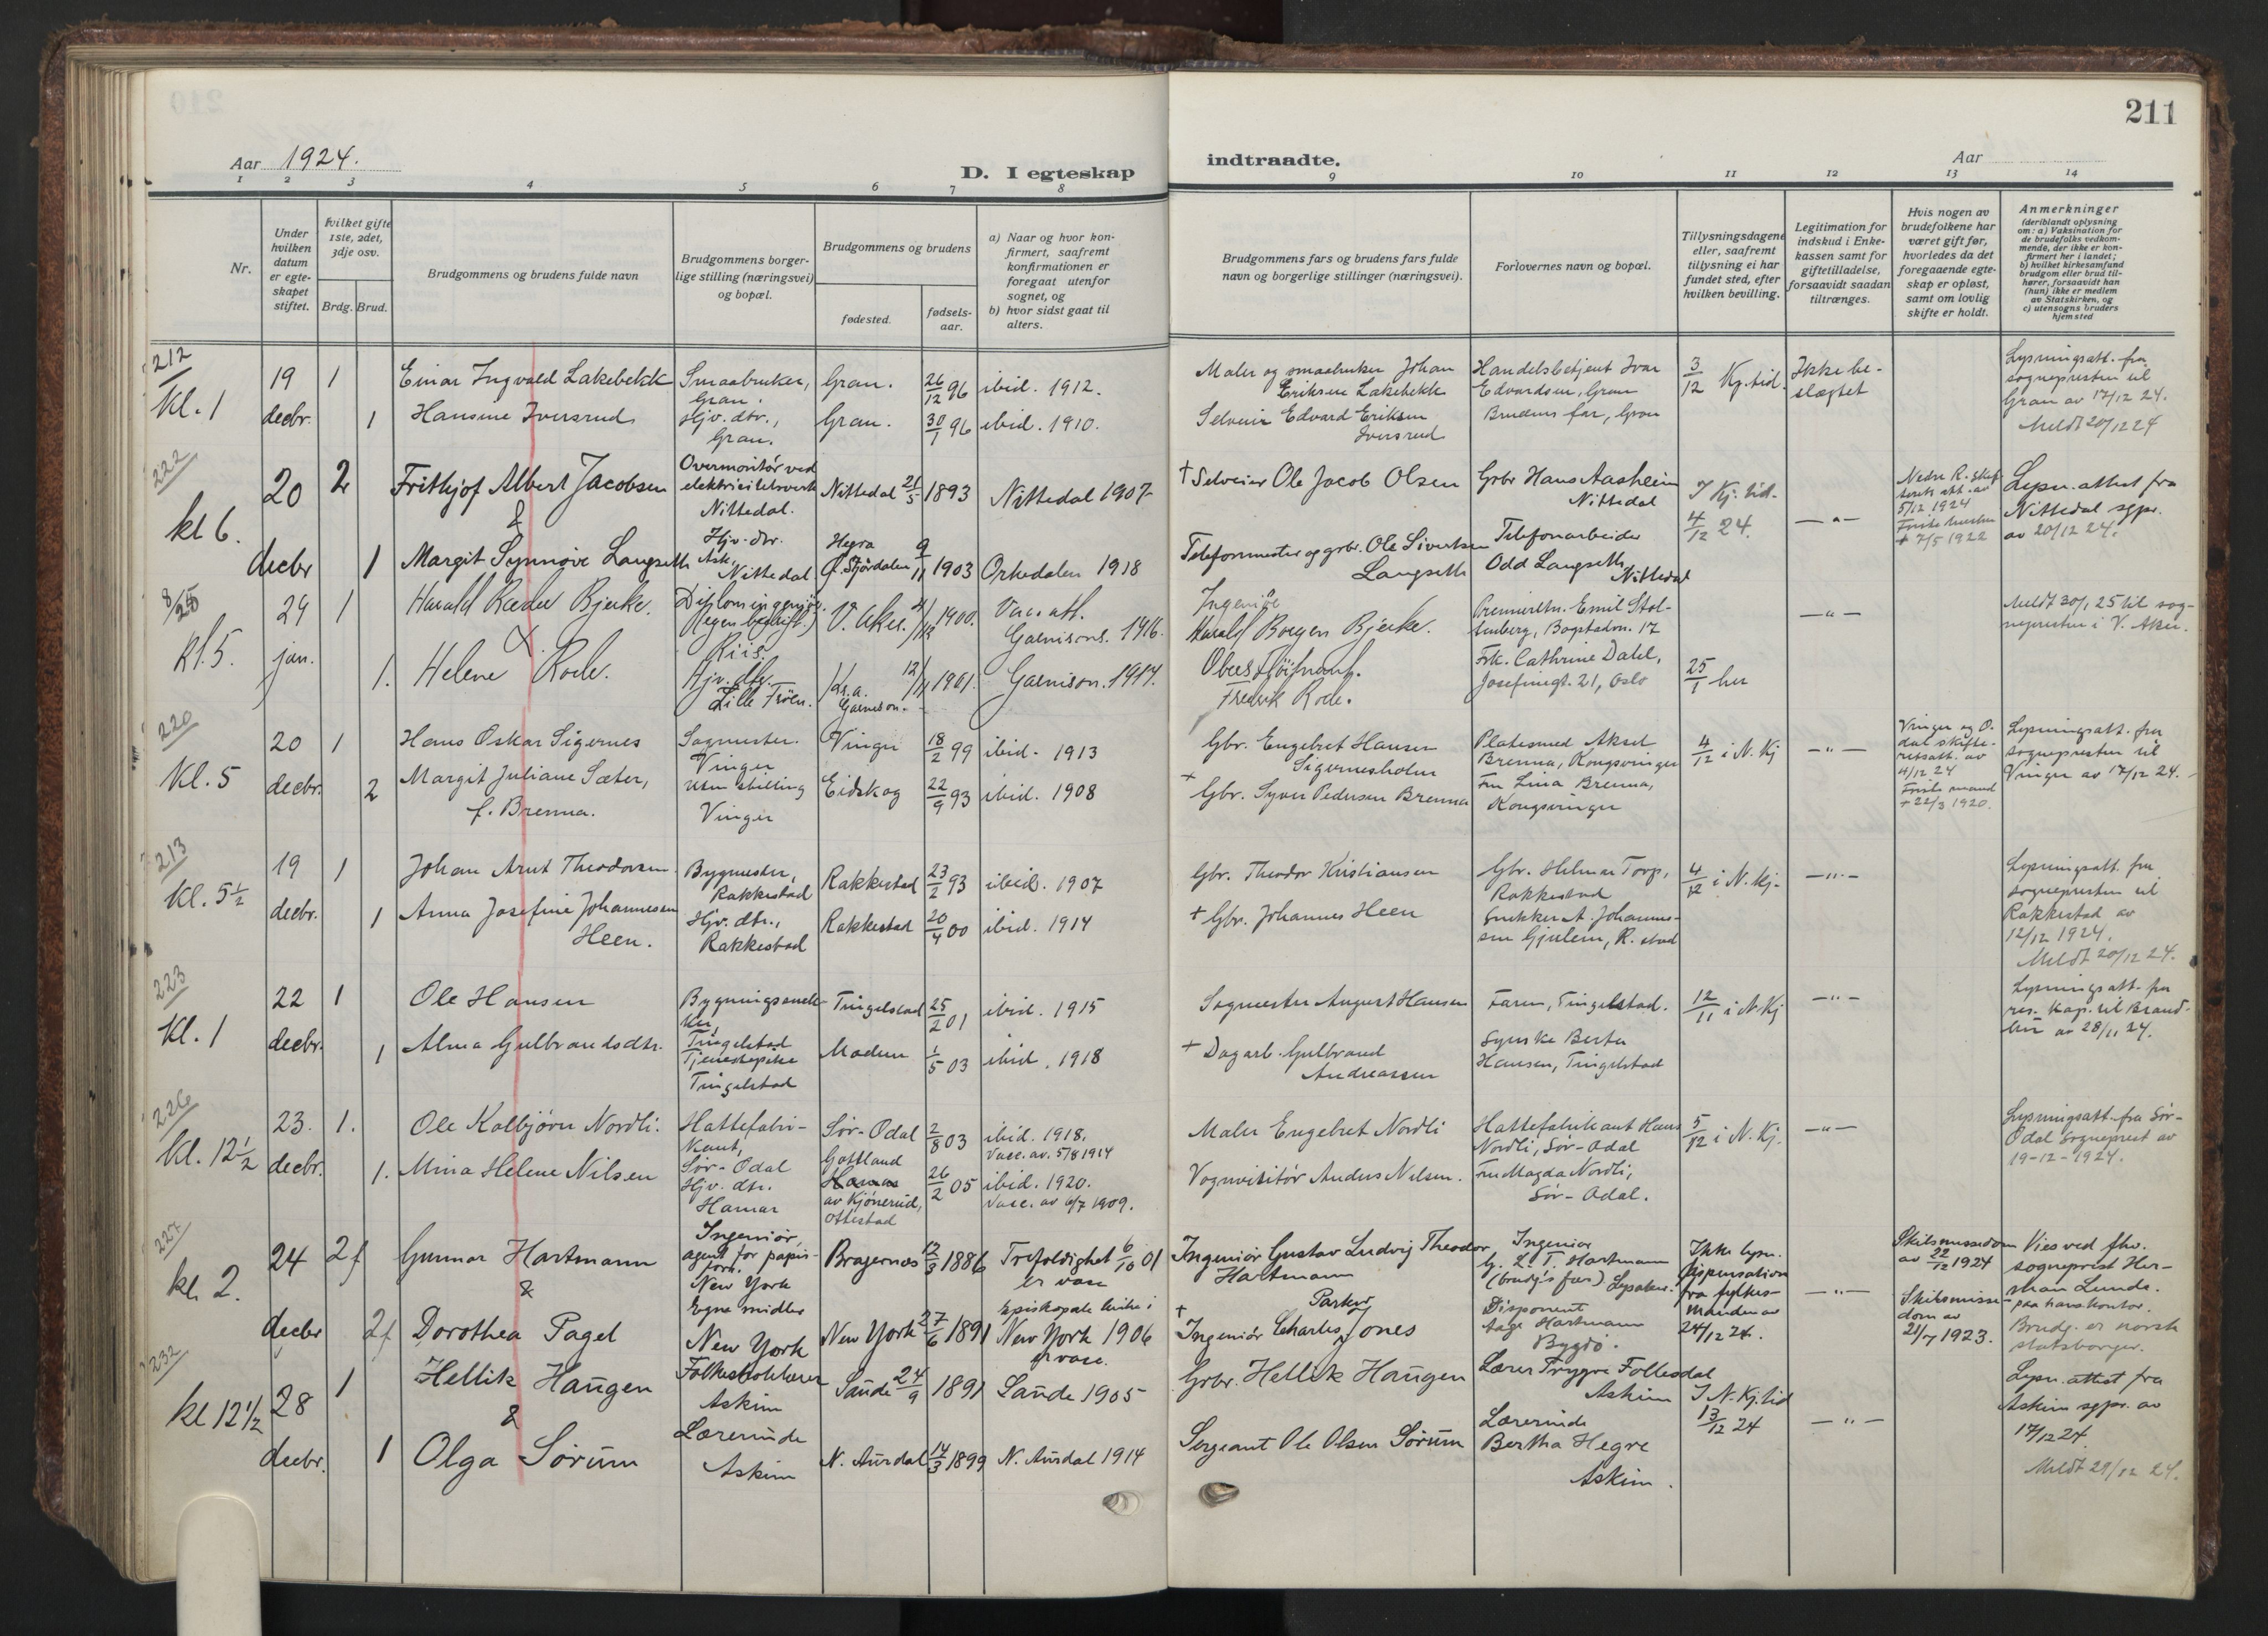 211
Aar 1924.
D. I egteskap
indtraadte.
Aar
1 2 3 4 5 6 7 8 9 10 11 12 13 14
Nr.
Under
hvilken
datum
er egte-
skapet
stiftet.
Hvilket gifte
1ste, 2det,
3dje osv.
Brdg. Brud.
Brudgommens og brudens fulde navn
Brudgommens borger-
lige stilling (næringsvei)
og bopæl.
Brudgommens og brudens
fødested.
fødsels-
aar.
a) Naar og hvor kon-
firmert, saafremt
konfirmationen er
foregaat utenfor
sognet, og
b) hvor sidst gaat til
alters.
Brudgommens fars og brudens fars fulde
navn og borgerlige stillinger (næringsvei).
Forlovernes navn og bopæl.
Tillysningsdagene
eller, saafremt
tillysning ei har
fundet sted, efter
hvilken bevilling.
Legitimation for
indskud i Enke-
kassen samt for
giftetilladelse,
forsaavidt saadan
tiltrænges.
Hvis nogen av
brudefolkene har
været gift før,
hvorledes da det
foregaaende egte-
skap er opløst,
samt om lovlig
skifte er holdt.
Anmerkninger
(deriblandt oplysning
om: a) Vaksination for
de brudefolks vedkom-
mende, der ikke er kon-
firmert her i landet;
b) hvilket kirkesamfund
brudgom eller brud til-
hører, forsaavidt han
(hun) ikke er medlem
av Statskirken, og
c) utensogns bruders
hjemsted
212
Kl. 1
19
decbr.
1
1
Einar Ingvald Lakebekk
Hansine Iversrud
Smaabruker,
Gran.
Hjv. dtr.,
Gran.
Gran.
Gran.
26/12 96
30/1 96
ibid. 1912.
ibid. 1910.
Maler og smaabruker Johan
Eriksen Lakebekk
Selveier Edvard Eriksen
Iversrud
Handelsbetjent Ivar
Edvardsen, Gran
Brudens far, Gran
3/12 Kj. tid.
Ikke be-
slægtet
Lysningsatt. fra
sognepresten til
Gran av 17/12 24.
Meldt 20/12 24
222
kl 6.
20
decbr
2
1
Frithjof Albert Jacobsen
&
Margit Synnøve Langseth
Overmontör ved
elektricitetsverk
Nittedal.
Hjv. dtr.
Ask,
Nittedal
Nittedal
Hegra
Ø. Stjördalen
21/5 1893
9/11 1903
Nittedal 1907
Orkedalen 1918
† Selveier Ole Jacob Olsen
Telefonmester og grbr. Ole Sivertsen
Langseth
Grbr Hans Aasheim
Nittedal
Telefonarbeider
Odd Langseth
Nittedal
I Kj. tid.
4/12 24.
— " —
Nedre R. skif-
terets att. av
5/12 1924
Første hustru
† 7/5 1922
Lysn. attest fra
Nittedal sgpr.
av 20/12 24.
8/25
kl. 5.
24
jan.
1
1.
Harald Ræder Bjerke.
&
Helene Rode.
Diplomingeniør.
(egen bedrift.)
Riis.
Hjv. dtr.
Lille Frøen.
V. Aker.
Kr.a.
Garnison.
1900.
1901.
Vac. att.
Garnisons. 1916.
Garnison. 1917.
Ingeniør
Harald Borgen Bjerke.
Oberstløitnant.
Fredrik Rode.
Premierltn. Emil Stol-
tenberg, Bogstadvn. 17
Frk. Cathrine Dahl,
Josefinegt. 21, Oslo
25/1 her
— " —
Meldt 30/1 25 til sog-
nepresten i V. Aker.
220
Kl. 5
20
decbr.
1
2
Hans Oskar Sigernes
Margit Juliane Sæter,
f. Brenna.
Sagmester.
Vinger
uten stilling
Vinger
Vinger
Eidskog
18/2 99
22/9 93
ibid. 1913
ibid. 1908
Gbr. Engebret Hansen
Sigernesholm
† Gbr. Syver Pedersen Brenna
Platesmed Aksel
Brenna, Kongsvinger
Fru Lina Brenna,
Kongsvinger
4/12 i N. Kj
— " —
Vinger og O-
dal skifte-
retsatt. av
4/12 24
Første mand
† 22/3 1920.
Lysningsatt. fra
sognepresten til
Vinger av 17/12 24.
213
Kl. 5½
19
decbr.
1
1
Johan Arnt Theodorsen
Anna Josefine Johannesen
Heen.
Bygmester,
Rakkestad
Hjv. dtr.,
Rakkestad
Rakkestad
Rakkestad
23/2 93
20/4 00
ibid. 1907
ibid. 1914
Gbr. Theodor Kristiansen
† Gbr. Johannes Heen
Gbr. Helmer Torp,
Rakkestad
Snekker A. Johannes-
sen Gjulem, R. stad
4/12 i N. kj.
— " —
Lysningsatt. fra
sognepresten til
Rakkestad av
12/12 1924.
Meldt 20/12 24.
223
Kl. 1
22
decbr.
1
1
Ole Hansen
Alma Gulbrandsdtr.
Bygningssnek-
ker,
Tingelstad
Tjenestepike
Tingelstad
Tingelstad
Modum
25/2 01
1/5 03
ibid. 1915
ibid. 1918
Sagmester August Hansen
† Dagarb. Gulbrand
Andreassen
Faren, Tingelstad.
Syerske Berta
Hansen, Tingelstad
12/11 i N. Kj
— " —
Lysningsatt. fra
res. kap. til Brand-
bu av 28/11 24.
226
Kl. 12½
23.
decbr.
1.
1.
Ole Kolbjørn Nordli.
Mina Helene Nilsen
Hattefabri-
kant,
Sør-Odal
Hjv. dtr.
Hamar
Sør-Odal
Gotland
Hamar
av Kjónerud,
Ottestad
2/8 03
26/2 05
ibid. 1918.
Vacc. av. 5/8 1914
ibid. 1920.
Vacc. av 6/7 1909.
Maler Engebret Nordli
Vognvisitør Anders Nilsen.
Hattefabrikant Hans
Nordli, Sør-Odal
Fru Magda Nordli,
Sør-Odal.
5/12 i N. Kj.
— " —
Lysningsatt. fra Sør-
Odal sogneprest av
19-12-1924.
227
kl. 2.
24
decbr
2f
2f
Gunnar Hartmann
&
Dorothea Pagel
Ingeniør,
agent for papir-
forr.
New York
Egne midler
New York
Bragernes
New York
12/3 1886
27/6 1891
Trefoldighet 6/10 01
er vacc
Episkopale kirke i
New York 1906
er vacc.
Ingeniör Gustav Ludvig Theodor
Hartmann
† Parker
Ingeniör Charles Jones
Ingeniør
G. L. T. Hartmann
(brudg's far) Lysaker.
Disponent
Aage Hartmann
Bygdö.
Ikke lysn.
Dispensation
fra fylkes-
manden av
24/12 24.
— " —
Skilsmissedom
av 22/12 1924
Skilsmisse-
dom av
21/7 1923.
Vies ved fhv.
sogneprest Her-
man Lunde.
paa hans kontor.
Brudg. er norsk
statsborger.
232
kl 12½
28
decbr.
1
1
Hellik Haugen
&
Olga Sörum
Folkeskolelærer
Askim
Lærerinde
Askim
Sande
N. Aurdal
24/9 1891
14/3 1899
Sande 1905
N. Aurdal 1914
Grbr. Hellik Haugen
Sergeant Ole Olsen Sörum
Lærer Trygve Follesdal
Askim
Lærerinde
Bertha Hegre
Askim.
I N. Kj. tid
13/12 24
— " —
Lysn. attest fra
Askim sgpr. av
17/12 24.
Meldt 29/12 24.